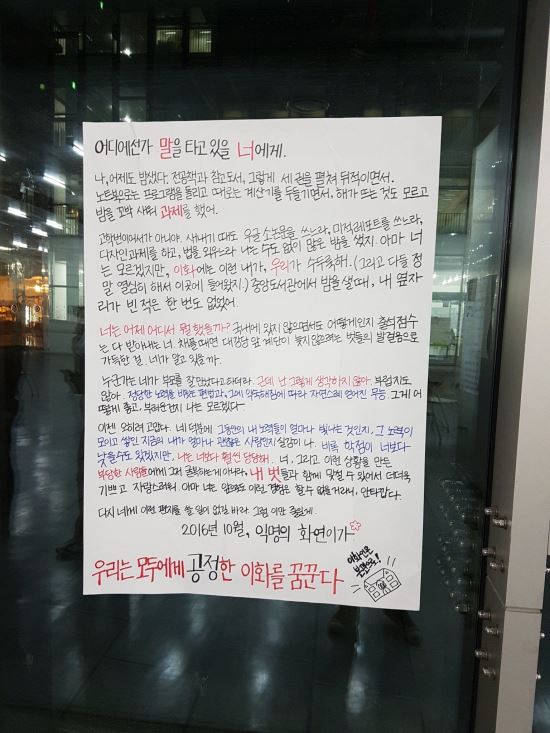 어디에선가 말을 타고 있을 너에게.
나, 어제도 밤샜다. 전공책과 참고도서, 그렇게 세 권을 펼쳐 뒤적이면서.
노트북으로는 프로그램을 돌리고 때로는 계산기를 두들기면서, 해가 뜨는 것도 모르고
밤을 꼬박 새워 과제를 했어.
고학번이어서가 아니야. 새내기 때도 우글 소논문을 쓰느라, 미적 레포트를 쓰느라,
디자인 과제를 하고, 법을 외우느라 나는 수도 없이 많은 밤을 샜지. 아마 너
는 모르겠지만, 이화에는 이런 내가, 우리가 수두룩해. (그리고 다들 정
말 열심히 해서 이곳에 들어왔지.) 중앙도서관에서 밤을 샐 때, 내 옆자
리가 빈 적은 한 번도 없었어.
너는 어제 어디서 뭘 했을까? 국내에 있지 않으면서도 어떻게인지 출석점수
는 다 받아내는 너. 채플 때면 대강당 앞 계단이 늦지 않으려는 벗들의 발걸음으로
가득한 걸. 네가 알고 있을까.
누군가는 네가 부모를 잘 만났다고 하더라. 근데 난 그렇게 생각하지 않아. 부럽지도
않아. 정당한 노력을 비웃는 편법과, 그에 익숙해짐에 따라 자연스레 얻어진 무능. 그게 어
떻게 좋고, 부러운 건지 나는 모르겠다.
이젠 오히려 고맙다. 네 덕분에 그동안의 내 노력들이 얼마나 빛나는 것인지, 그 노력이
모이고 쌓인 지금의 내가 얼마나 괜찮은 사람인지 실감이 나. 비록 학점이 너보다
낮을 수도 있겠지만, 나는 너보다 훨씬 당당해. 너, 그리고 이런 상황을 만든
부당한 사람들에게 그저 굴복하는게 아니라, 내 벗들과 함께 맞설 수 있어서 더더욱
기쁘고 자랑스러워. 아마 너는 앞으로도 이런 경험은 할 수 없을 거라니, 안타깝다.
다시 네게 이런 편지를 쓸 일이 없길 바라. 그럼 이만 줄일게.
2016년 10월, 익명의 화연이가
우리는 모두에게 공정한 이화를 꿈꾼다
이화인은
본관으로!